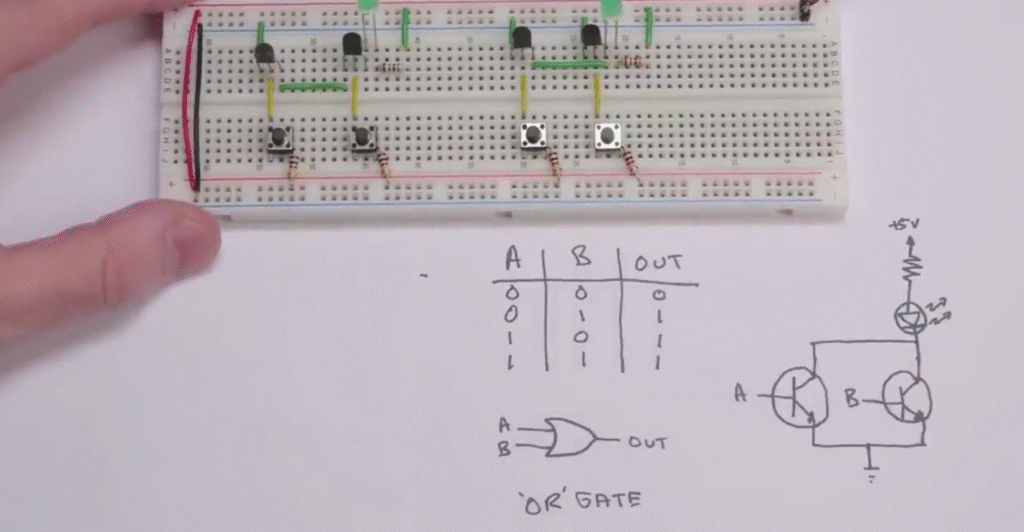 A B OUT
0 0 0
0 1 1
1 0 1
1 1 1
A
B
OUT
'OR' GATE
+5V
A
B